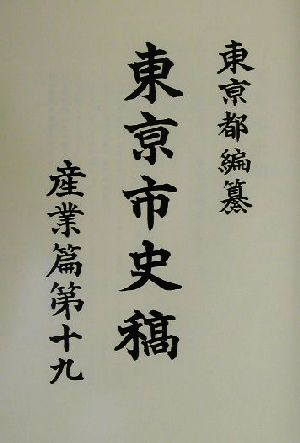 東亰都編纂
東亰市史稿
産業篇第十九